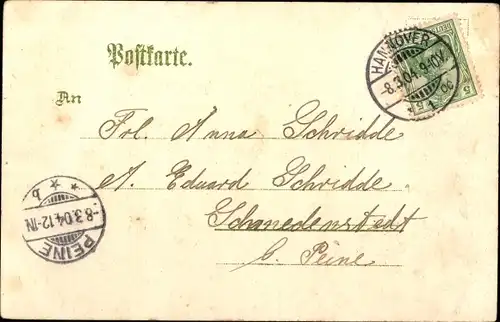 Postkarte.
HANNOVER
8.3.04.9-10V.
An
Frl. Anna Schridde
A. Eduard Schridde
Schmedenstedt
b. Peine
PEINE
-8.3.04.12-1N
* b *
5